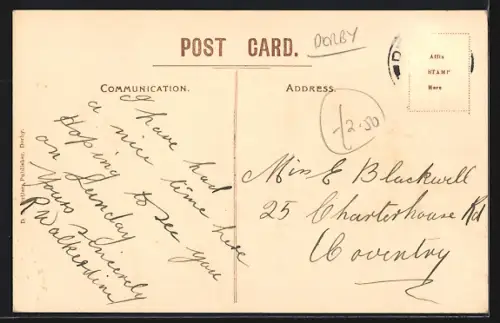 POST CARD.
DORBY
COMMUNICATION.
ADDRESS.
Affix
STAMP
Here
I have had
a nice time here
Hoping to see you
on Sunday
Yours sincerely
R Walkerdine
£2.50
Miss E Blackwell
25 Charterhouse Rd
Coventry
Publisher, Derby.